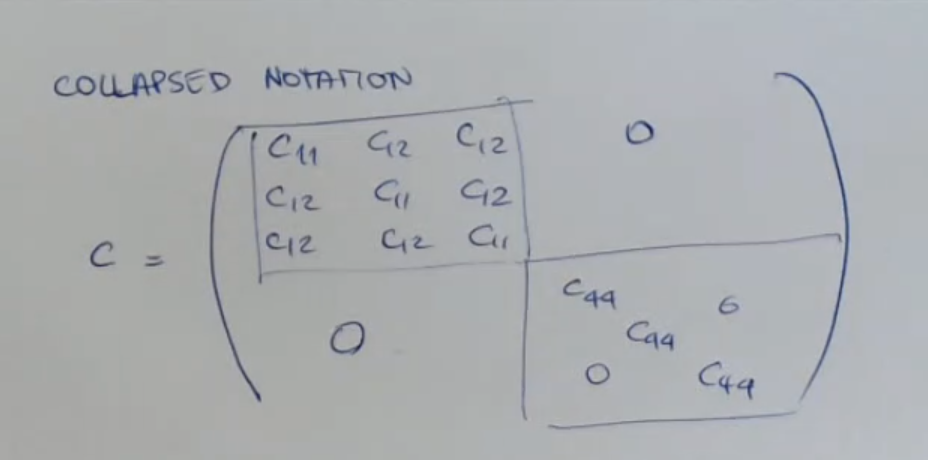 COLLAPSED NOTATION
C11 C12 C12 0
C12 C11 C12
C12 C12 C11
C =
C44 0
0 C44
0 C44